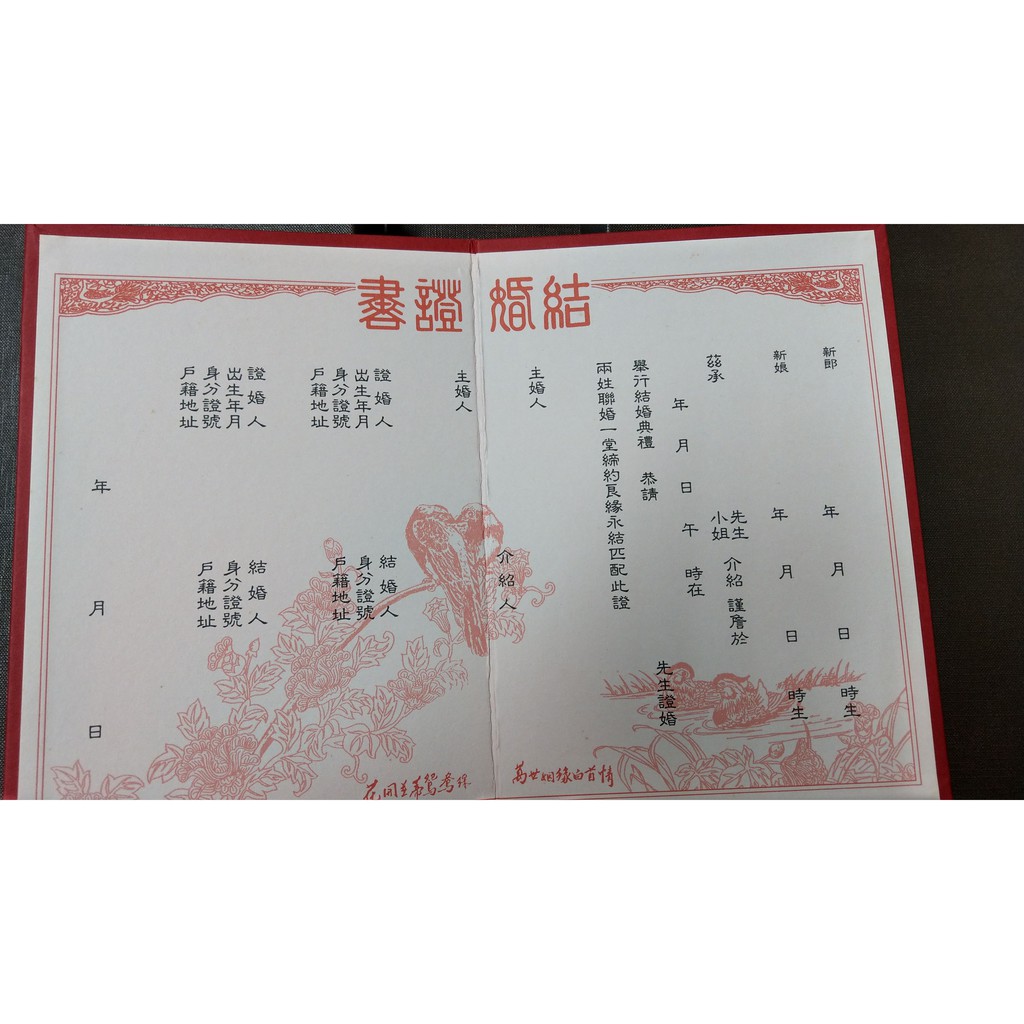 結婚證書
新郎 年 月 日 時生
新娘 年 月 日 時生
茲承 先生 小姐 介紹 謹詹於
年 月 日 午 時在
舉行結婚典禮 恭請 先生證婚
兩姓聯婚一堂締約良緣永結匹配此證
主婚人
介紹人
主婚人
證婚人
出生年月
身分證號
戶籍地址
結婚人
身分證號
戶籍地址
證婚人
出生年月
身分證號
戶籍地址
結婚人
身分證號
戶籍地址
年 月 日
萬世姻緣白首情
花開並蒂鴛鴦